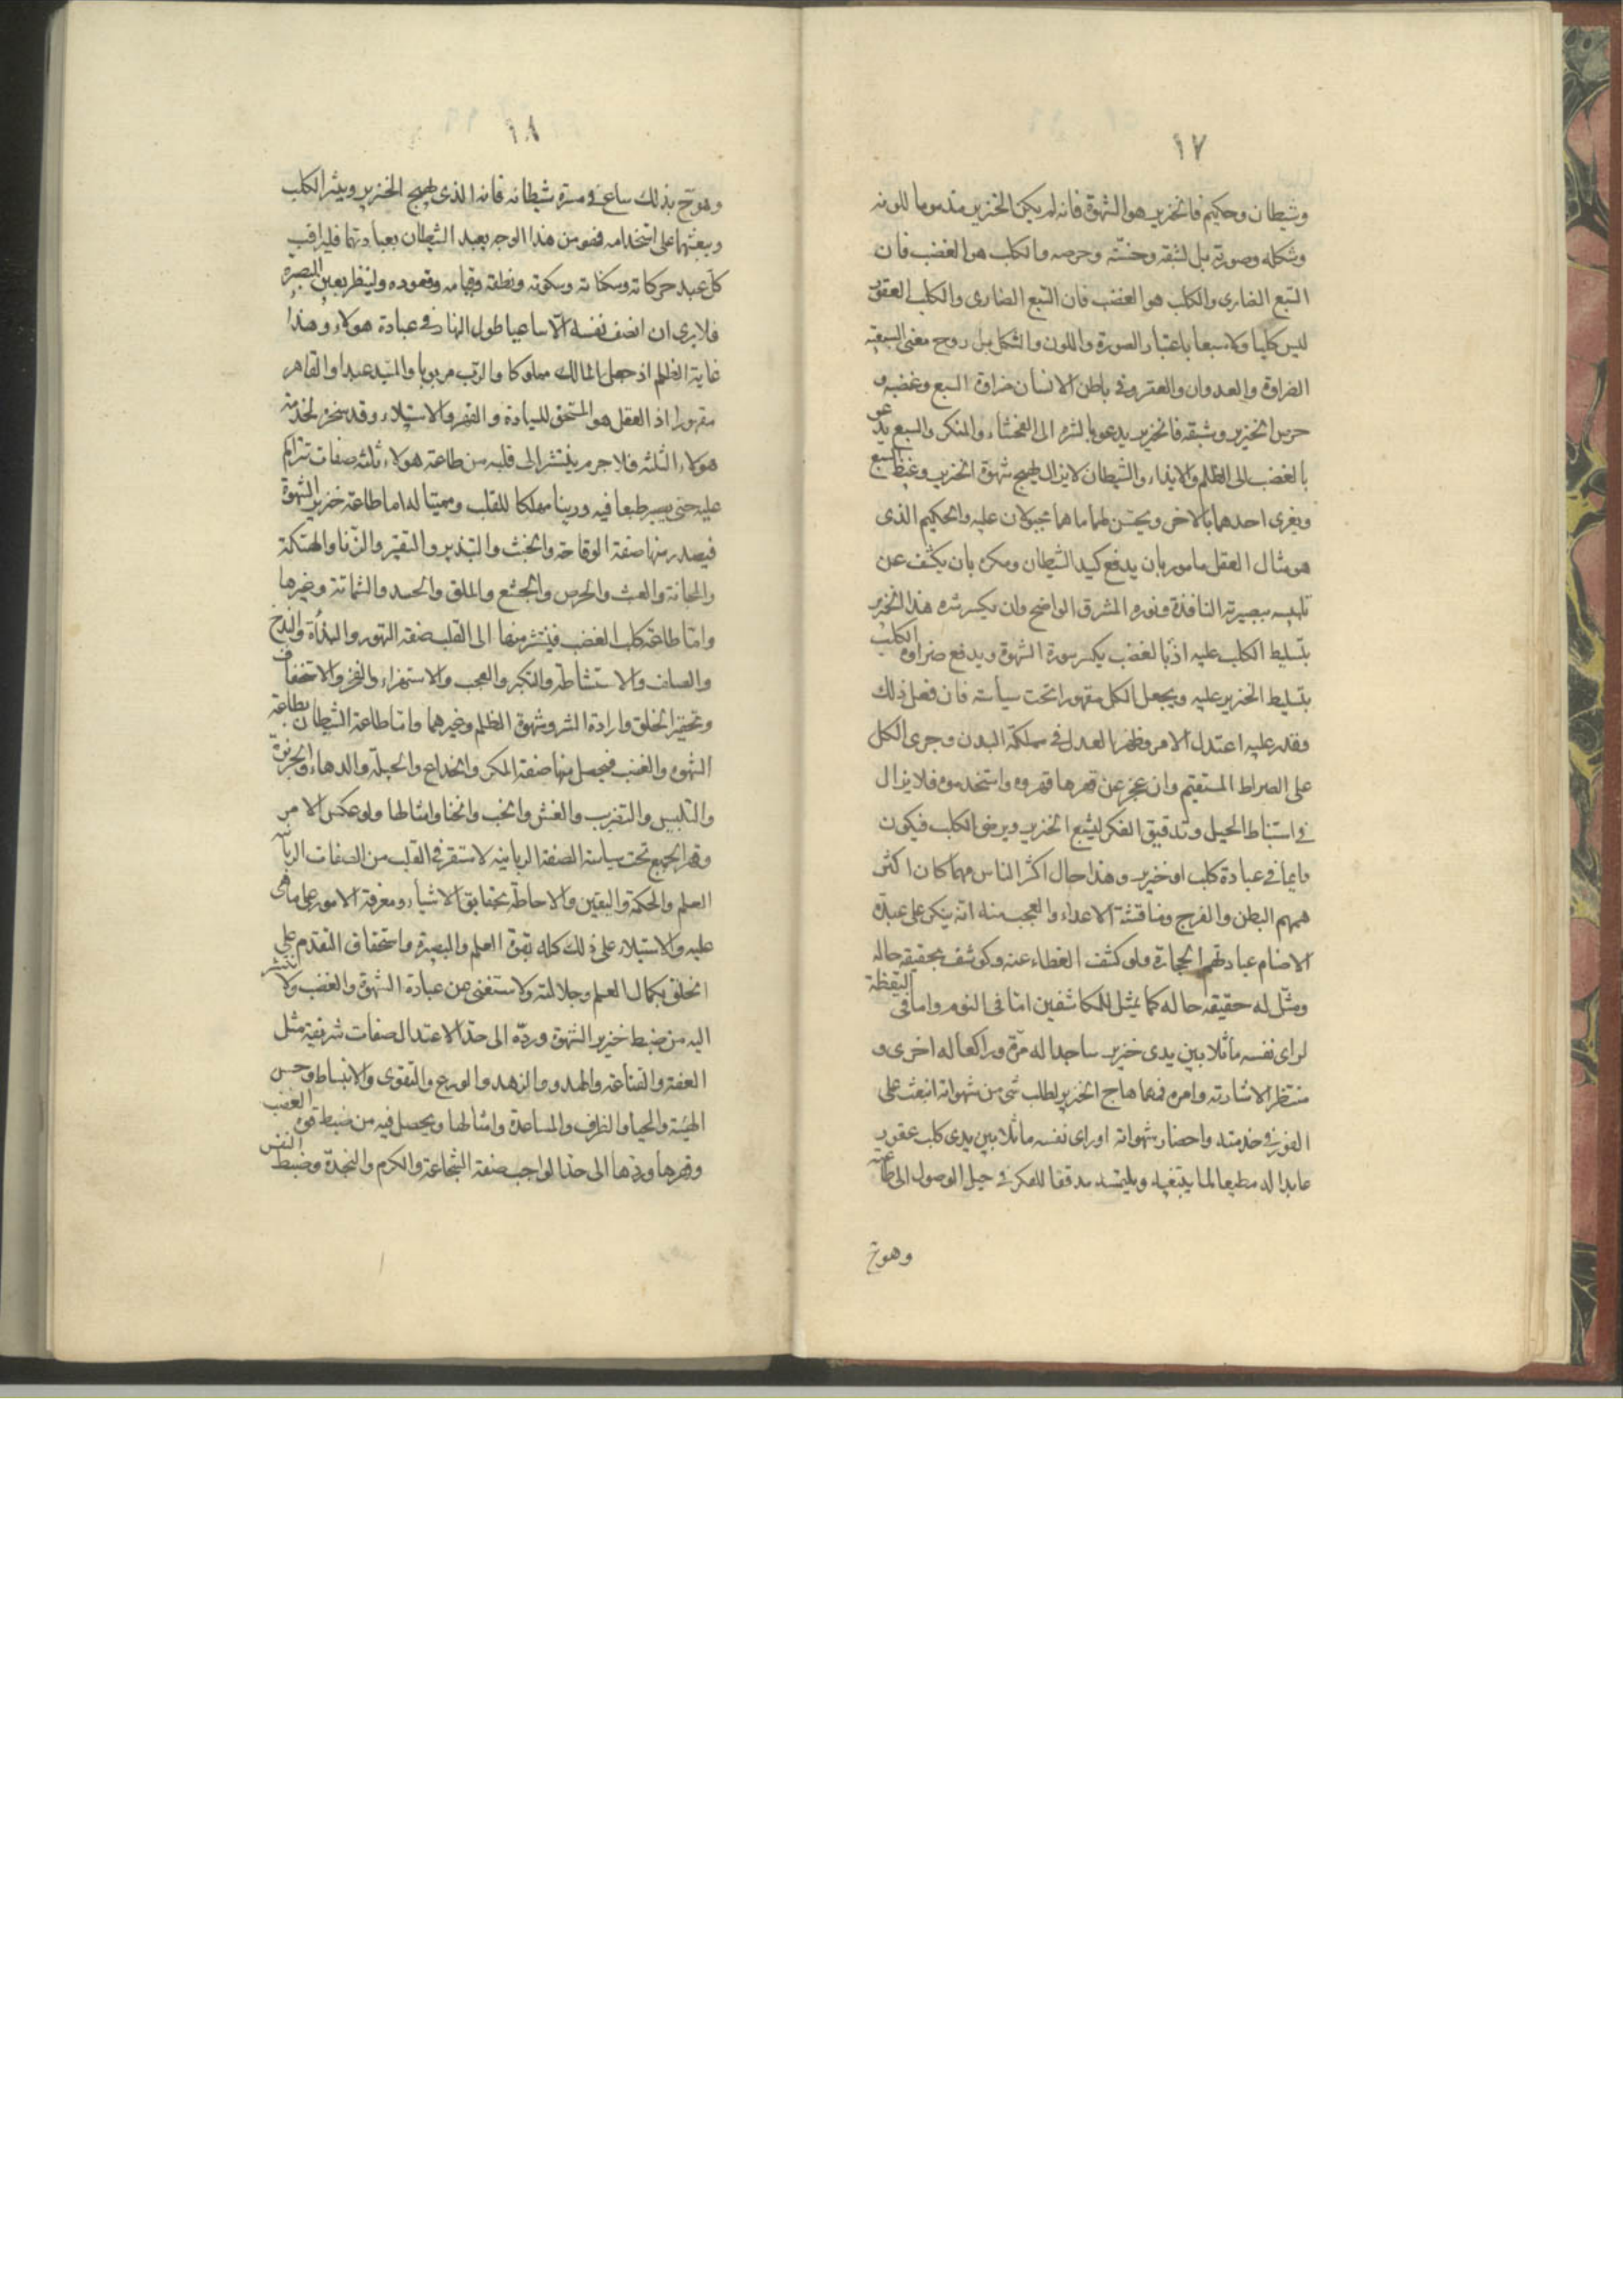 ١٧
وشيطان وحكيم فالخنزير هو الشهوة فانه لم يكن الخنزير مذموما للونه
وشكله وصورته بل لشبقه وخسّته وحرصه والكلب هو الغضب فان
السّبع الضارى والكلب هو الغضب فان السّبع الضارى والكلب العقور
ليس كلبا ولا سبعا باعتبار الصورة واللون والشكل بل روح معنى السبعيّه
الضراوة والعدوان والعقر وفى باطن الانسان ضراوة السبع وغضبه و
حرص الخنزير وشبقه فالخنزير يدعو بالشره الى الفحشاء والمنكر والسبع يدعو
بالغضب الى الظلم والايذاء والشّيطان لا يزال يهيج شهوة الخنزير وغيظ السبع
ويغرى احدهما بالاخر ويحسّن لهما ما هما مجبولان عليه والحكيم الذى
هو مثال العقل مامور بان يدفع كيد الشيطان ومكره بان يكشف عن
تلبيسه ببصيرته النافذة ونوره المشرق الواضح وان يكسر شره هذا الخنزير
بتسليط الكلب عليه اذ بالغضب يكسر سورة الشهوة ويدفع ضراوة الكلب
بتسليط الخنزير عليه ويجعل الكل مقهورا تحت سياسته فان فعل ذلك
وقدر عليه اعتدل الامر وظهر العدل فى مملكة البدن وجرى الكل
على الصراط المستقيم وان عجز عن قهرها قهروه واستخدموه فلا يزال
فى استنباط الحيل وتدقيق الفكر ليشبع الخنزير ويرضى الكلب فيكون
دايما فى عبادة كلب او خنزير وهذا حال اكثر الناس مهما كان اكثر
همهم البطن والفرج ومناقشة الاعداء والعجب منه انه ينكر على عبدة
الاصنام عبادتهم الحجارة ولو كشف الغطاء عنه وكوشف بحقيقه حاله
ومثّل له حقيقه حاله كما يمثل للمكاشفين امّا فى النوم واما فى اليقظة
لراى نفسه ماثلا بين يدى خنزير ساجدا له مرّة وراكعا له اخرى و
منتظرا لاشارته وامره فمهما هاج الخنزير لطلب شى من شهواته انبعث على
الفور فى خدمته واحضار شهواته او راى نفسه ماثلا بين يدى كلب عقور
عابدا له مطيعا لما يبتغيه ويلتمسه مدققا للفكر فى حيل الوصول الى طاعته
وهو فى
١٨
وهو فى ذلك ساع فى مسرة شيطانه فانه الذى يهيج الخنزير ويثير الكلب
ويبعثهما على استخدامه فهو من هذا الوجه يعبد الشيطان بعبادتهما فليراقب
كل عبد حركاته وسكناته وسكوته ونطقه وقيامه وقعوده ولينظر بعين البصيرة
فلا يرى ان انصف نفسه الّا ساعيا طول النهار فى عبادة هولاء وهذا
غاية الظلم اذ جعل المالك مملوكا والرّب مربوبا والسّيد عبدا والقاهر
مقهورا اذ العقل هو المستحق للسيادة والقهر والاستيلاء وقد سخره لخدمة
هولاء الثلثه فلا جرم ينتشر الى قلبه من طاعة هولاء ثلثه صفات تتراكم
عليه حتى يصير طبعا فيه ورينا مهلكا للقلب ومميتا له اما طاعة خنزير الشهوة
فيصدر منها صفة الوقاحة والخبث والتبذير والتقتير والرّيا والهتكة
والمجانة والعبث والحرص والجشع والملق والحسد والشماتة وغيرها
وامّا طاعة كلب الغضب فينتشر منها الى القلب صفه التهور والبذأة والبذخ
والصلف والاستشاطه والتكبر والعجب والاستهزاء والفخر والاستخفاف
وتحقير الخلق وارادة الشر وشهوة الظلم وغيرهما وامّا طاعة الشيطان بطاعة
الشهوه والغضب فيحصل منها صفة المكر والخداع والحيلة والدهاء والجربزة
والتلبيس والتضريب والغش والخب والخنا وامثالها ولو عكس الامر
وقهر الجميع تحت سياسة الصفة الربانيه لاستقر فى القلب من الصفات الربانيه
العلم والحكمة واليقين والاحاطة بحقايق الاشياء ومعرفة الامور على ما هى
عليه والاستيلاء على ذلك كله بقوة العلم والبصيرة واستحقاق التقدم على
الخلق بكمال العلم وجلالته ولاستغنى عن عبادة الشهوة والغضب ولانتشر
اليه من ضبط خنزير الشهوة وردّه الى حدّ الاعتدال صفات شريفة مثل
العفة والقناعة والهدو والزهد والورع والتقوى والانبساط وحسن
الهيئة والحيا والظرف والمساعدة وامثالها ويحصل فيه من ضبط قوة الغضب
وقهرها وردها الى حد الواجب صفة الشجاعة والكرم والنجدة وضبط النفس